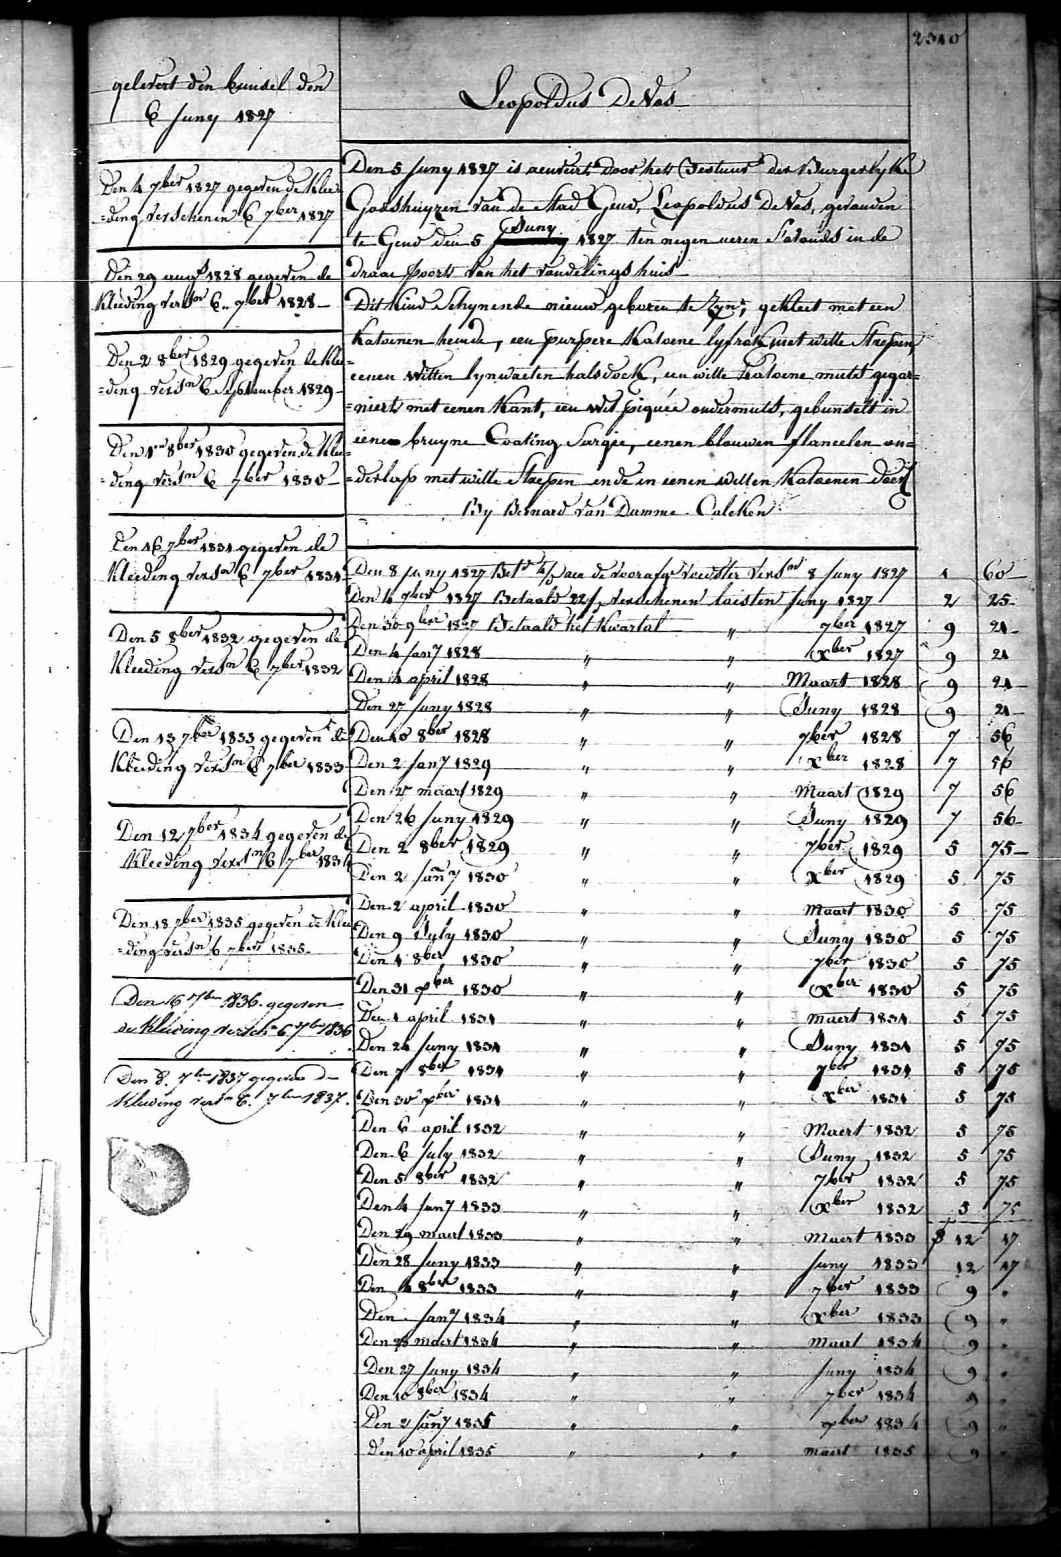 2310
gelevert den bunsel den
6 Juny 1827
Den 4 7ber 1827 gegeven de Klee
=ding verschenen 6 7ber 1827
Den 29 augt 1828 gegeven de
Kleeding versn 6 7ber 1828
Den 2 8ber 1829 gegeven de Klee=
=ding versn 6 September 1829
Den 1en 8ber 1830 gegeven de Klee=
=ding versn 6 7ber 1830
Den 16 7ber 1831 gegeven de
Kleeding versn 6 7ber 1831
Den 5 8ber 1832 gegeven de
Kleeding versn 6 7ber 1832
Den 13 7ber 1833 gegeven de
Kleeding versn 6 7ber 1833
Den 12 7ber 1834 gegeven de
Kleeding versn 6 7ber 1834
Den 18 7ber 1835 gegeven de Klee
=ding versn 6 7ber 1835.
Den 16 7ber 1836 gegeven
de Kleeding versch 6 7ber 1836
Den 8. 7ber 1837 gegeven de
Kleeding versn 6. 7ber 1837.
Leopoldus De Vos
Den 5 Juny 1827 is aenveirt door het Bestuur der Burgerlyke
Godshuyzen van de Stad Gend, Leopoldus De Vos, gevonden
te Gend den 5 Juny 1827 ten negen ueren s'avonds in de
draaepoort van het vondelingshuis
Dit Kind Schynende nieuw geboren te Zyn, gekleet met een
Katoenen hemde, een purpere Katoene lyfrok met witte Strepen,
eenen Witten lynwaeten halsdoek, een witte Katoene muts gegar=
=niert met eenen Kant, een wit piquée ondermuts, gebunselt in
eene bruyne Coating Sargie, eenen blauwen flanelen on=
=derlap met witte Strepen ende in eenen Witten Katoenen doek
By Bernard van Damme Calcken
Den 8 Juny 1827 Betd aen de voorafge voedster versn 8 Juny 1827 1 60
Den 4 7ber 1827 Betaald 22/ verschenen laesten Juny 1827 2 25
Den 30 9ber 1827 Betaald het Kwartal " 7ber 1827 9 21
Den 4 Jany 1828 " " Xber 1827 9 21
Den 4 april 1828 " " Maart 1828 9 21
Den 27 Juny 1828 " " Juny 1828 9 21
Den 10 8ber 1828 " " 7ber 1828 7 56
Den 2 Jany 1829 " " Xber 1828 7 56
Den 27 maart 1829 " " Maart 1829 7 56
Den 26 Juny 1829 " " Juny 1829 7 56
Den 2 8ber 1829 " " 7ber 1829 5 75
Den 2 Jany 1830 " " Xber 1829 5 75
Den 2 april 1830 " " Maart 1830 5 75
Den 9 July 1830 " " Juny 1830 5 75
Den 1 8ber 1830 " " 7ber 1830 5 75
Den 31 Xber 1830 " " Xber 1830 5 75
Den 1 april 1831 " " Maert 1831 5 75
Den 24 Juny 1831 " " Juny 1831 5 75
Den 7 8ber 1831 " " 7ber 1831 5 75
Den 30 Xber 1831 " " Xber 1831 5 75
Den 6 april 1832 " " Maert 1832 5 75
Den 6 July 1832 " " Juny 1832 5 75
Den 5 8ber 1832 " " 7ber 1832 5 75
Den 4 Jany 1833 " " Xber 1832 5 75
Den 29 maert 1833 " " Maert 1833 12 17
Den 28 Juny 1833 " " Juny 1833 12 17
Den 4 8ber 1833 " " 7ber 1833 9 "
Den Jany 1834 " " Xber 1833 9 "
Den 28 maert 1834 " " Maert 1834 9 "
Den 27 Juny 1834 " " Juny 1834 9 "
Den 10 8ber 1834 " " 7ber 1834 9 "
Den 2 Jany 1835 " " Xber 1834 9 "
Den 10 april 1835 " " maert 1835 9 "